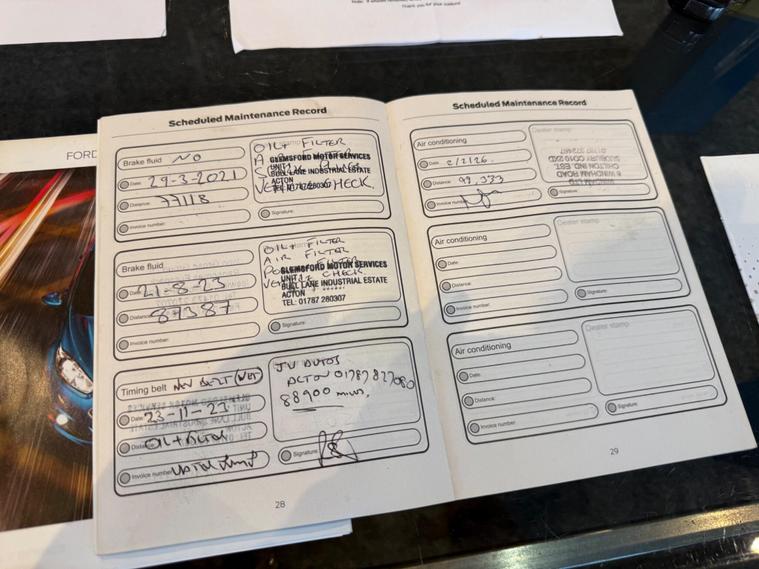 Thank you for your custom!
FORD
Scheduled Maintenance Record
Brake fluid NO
Date: 29-3-2021
Distance: 77118
Invoice number:
OIL+ FILTER
GLEMSFORD MOTOR SERVICES
UNIT
BULL LANE INDUSTRIAL ESTATE
ACTON
TEL: 01787 280307
CHECK.
Signature:
Brake fluid
Date: 21-8-23
Distance: 87387
Invoice number:
OIL+ FILTER
AIR FILTER
GLEMSFORD MOTOR SERVICES
UNIT
BULL LANE INDUSTRIAL ESTATE
CHECK.
ACTON
TEL: 01787 280307
Signature:
Timing belt NEW BELT (WET)
Date: 23-11-23
Distance: OIL+
Invoice number:
JV AUTOS
ACTON 01787 827080
88900 miles.
Signature:
28
Scheduled Maintenance Record
Air conditioning
Date: 2/1/26.
Distance: 99,333
Invoice number:
Dealer stamp
6 WINDHAM ROAD
CHILTON IND. EST.
SUDBURY CO10 2XD
Signature:
Air conditioning
Date:
Distance:
Invoice number:
Dealer stamp
Signature:
Air conditioning
Date:
Distance:
Invoice number:
Dealer stamp
Signature:
29